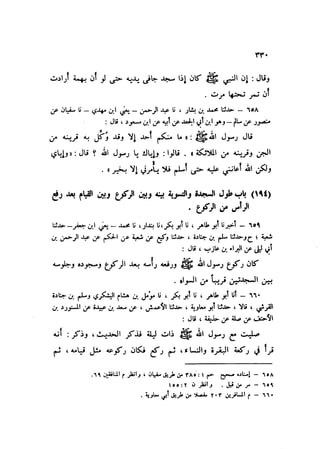 ٣٣٠
وقال : إن النبي ﷺ كان إذا سجد جافى يديه حتى لو أن بهمة أرادت
أن تمر تحتها مرت .
٦٥٨ – حدثنا محمد بن بشار ، نا عبد الرحمن – يعني ابن مهدي – نا سفيان عن
منصور عن سالم – وهو ابن أبي الجعد عن أبيه عن ابن مسعود ، قال :
قال رسول الله ﷺ : « ما منكم من أحد إلا وقد وكل به قرينه من
الجن وقرينه من الملائكة » . قالوا : وإياك يا رسول الله ؟ قال : « وإياي
ولكن الله أعانني عليه حتى أسلم فلا يأمرني إلا بخير » .
(١٩٤) باب طول السجود والتسوية بينه وبين الركوع وبين القيام بعد رفع
الرأس من الركوع .
٦٥٩ – أخبرنا أبو طاهر ، نا أبو بكر ، نا بندار ، نا محمد – يعني ابن جعفر – حدثنا
شعبة ، ح وحدثنا سلم بن جنادة ، حدثنا وكيع عن شعبة عن الحكم عن عبد الرحمن بن
أبي ليلى عن البراء بن عازب ، قال :
كان ركوع رسول الله ﷺ ورفعه رأسه بعد الركوع وسجوده وجلوسه
بين السجدتين قريباً من السواء .
٦٦٠ – أنا أبو طاهر ، نا أبو بكر ، نا مؤمل بن هشام اليشكري وسلم بن جنادة
القرشي ، قالا ، حدثنا أبو معاوية ، حدثنا الأعمش ، عن سعد بن عبيدة عن المستورد بن
الأحنف عن صلة عن حذيفة ، قال :
صليت مع رسول الله ﷺ ذات ليلة فذكر الحديث ، وذكر : أنه
قرأ في ركعة البقرة والنساء ، ثم ركع فكان ركوعه مثل قيامه ، ثم
٦٥٨ – إسناده صحيح حم ١ : ٣٨٥ من طريق سفيان ، وانظر م المنافقين ٦٩.
٦٥٩ – مر من قبل . وانظر ن ٢ : ١٥٥
٦٦٠ – م المسافرين ٢٠٣ مفصلا من طريق أبي معاوية .